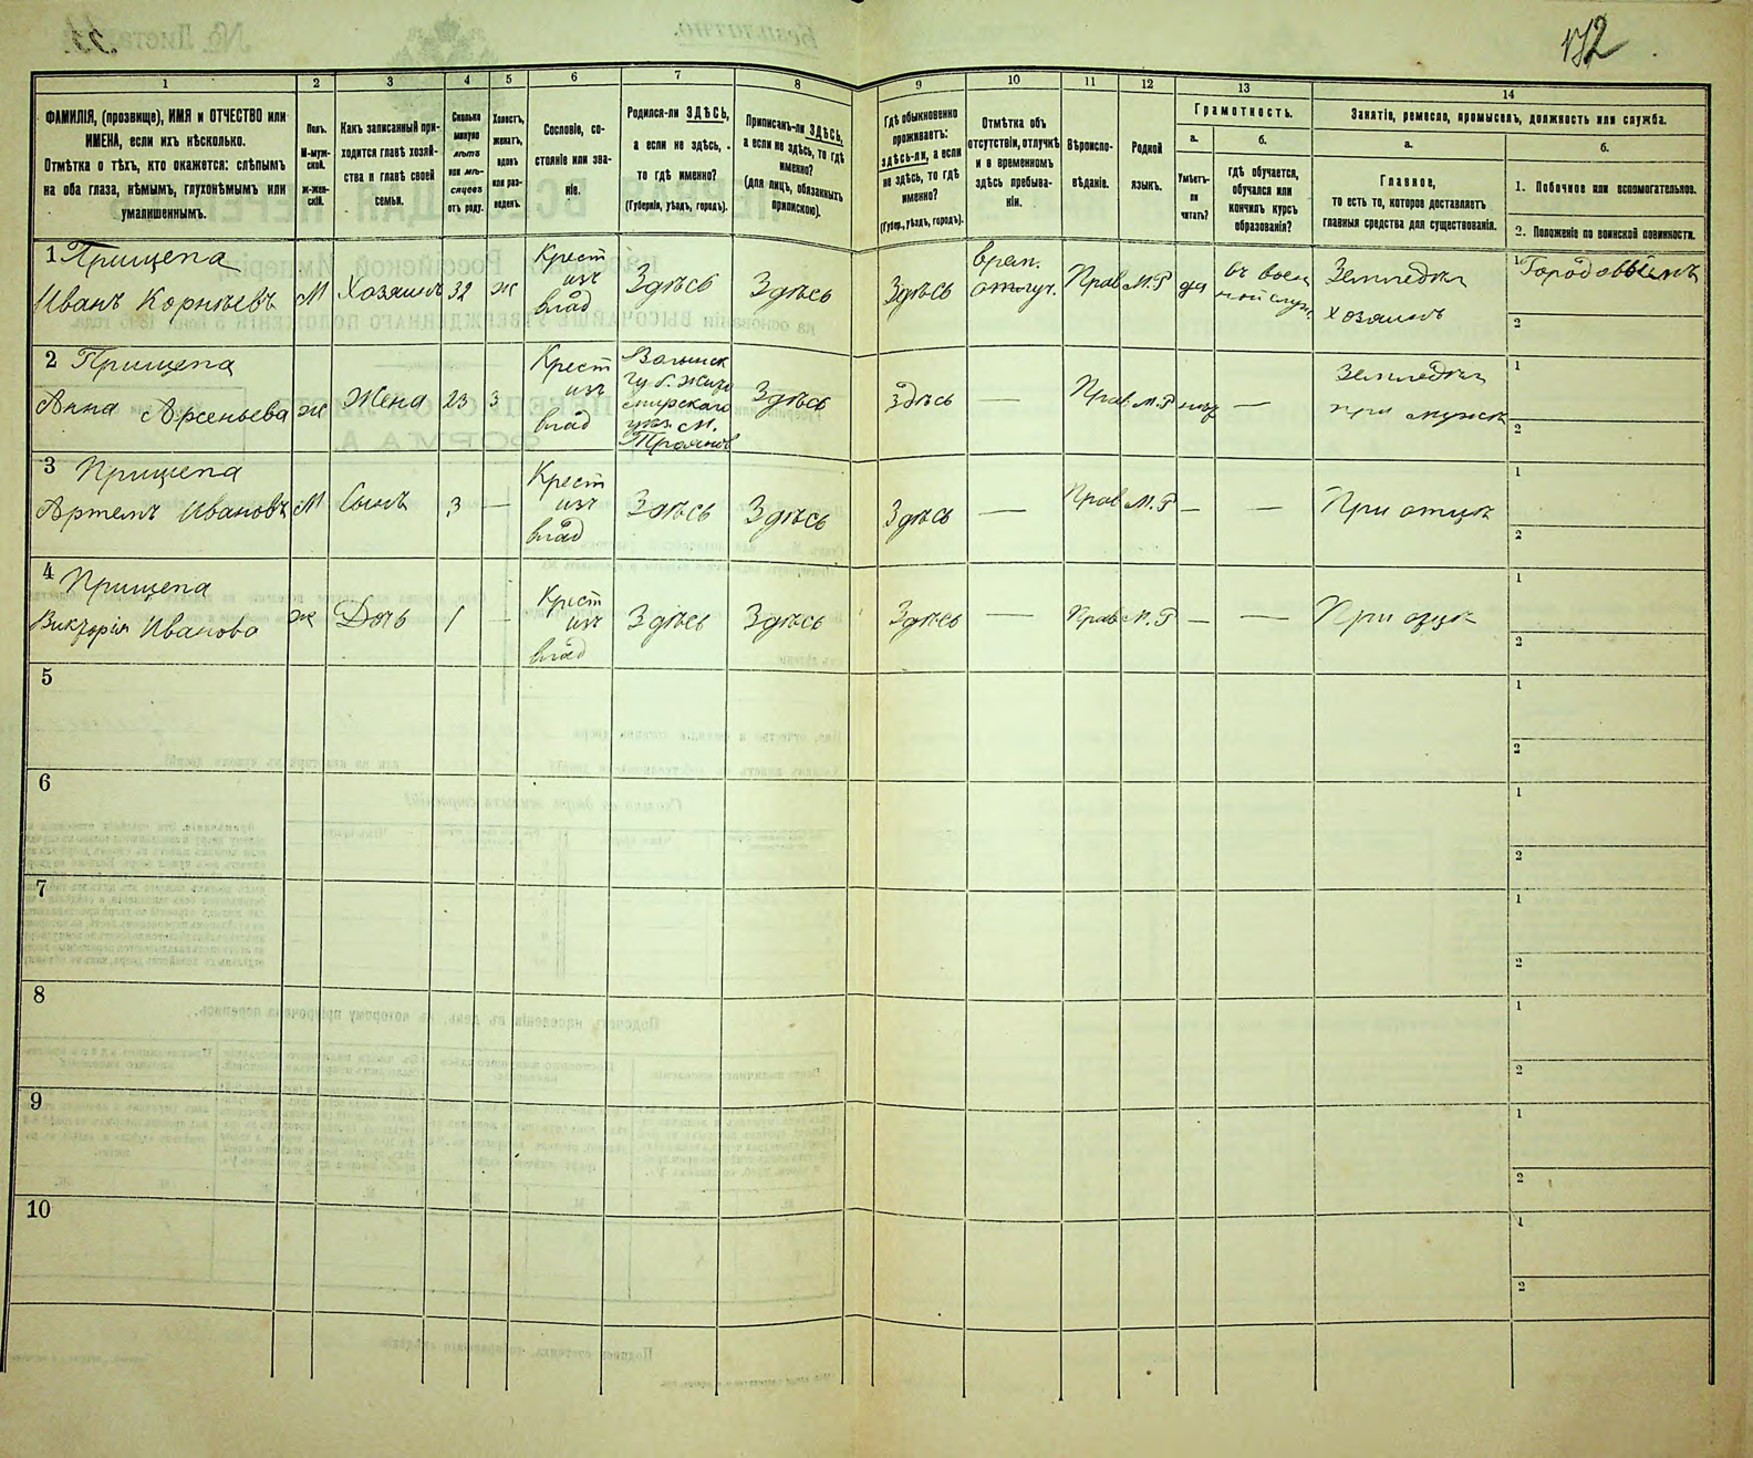 172
1
2
3
4
5
6
7
8
9
10
11
12
13
14
ФАМИЛІЯ, (прозвище), ИМЯ и ОТЧЕСТВО или
ИМЕНА, если ихъ нѣсколько.
Отмѣтка о тѣхъ, кто окажется: слѣпымъ
на оба глаза, нѣмымъ, глухонѣмымъ или
умалишеннымъ.
Полъ.
М-муж-
ской.
Ж-жен-
скій.
Какъ записанный при-
ходится главѣ хозяй-
ства и главѣ своей
семьи.
Сколько
минуло
лѣтъ
или мѣ-
сяцевъ
отъ роду.
Холостъ,
женатъ,
вдовъ
или раз-
веденъ.
Сословіе, со-
стояніе или зва-
ніе.
Родился-ли ЗДѢСЬ,
а если не здѣсь,
то гдѣ именно?
(Губернія, уѣздъ, городъ).
Приписанъ-ли ЗДѢСЬ,
а если не здѣсь, то гдѣ
именно?
(для лицъ, обязанныхъ
припискою).
Гдѣ обыкновенно
проживаетъ:
здѣсь-ли, а если
не здѣсь, то гдѣ
именно?
(Губер., уѣздъ, городъ).
Отмѣтка объ
отсутствіи, отлучкѣ
и о временномъ
здѣсь пребыва-
ніи.
Вѣроиспо-
вѣданіе.
Родной
языкъ.
Грамотность.
а.
Умѣетъ-
ли
читать?
б.
гдѣ обучается,
обучался или
кончилъ курсъ
образованія?
Занятіе, ремесло, промыселъ, должность или служба.
а.
Главное,
то есть то, которое доставляетъ
главныя средства для существованія.
б.
1. Побочное или вспомогательное.
2. Положеніе по воинской повинности.
1 Прищепа
Иванъ Корнѣевъ
М
Хозяинъ
32
ж
Крест
изъ
влад
Здѣсь
Здѣсь
Здѣсь
врем.
отлуч.
Прав
М.Р
да
въ воен
ной служ.
Земледѣл
хозяинъ
1 Городовымъ
2
2 Прищепа
Анна Арсеньева
ж
Жена
23
З
Крест
изъ
влад
Волынск
губ. Жито
мирскаго
уѣз. М.
Троянов
Здѣсь
здѣсь
—
Прав.
М.Р
нѣт
—
Земледѣл
при мужѣ
1
2
3 Прищепа
Артемъ Ивановъ
М
Сынъ
3
—
Крест
изъ
влад
Здѣсь
Здѣсь
Здѣсь
—
Прав
М.Р
—
—
При отцѣ
1
2
4 Прищепа
Викторія Иванова
ж
Дочь
1
—
Крест
изъ
влад
Здѣсь
Здѣсь
Здѣсь
—
Прав
М.Р
—
—
При отцѣ
1
2
5
1
2
6
1
2
7
1
2
8
1
2
9
1
2
10
1
2